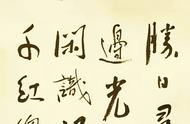 勝日尋
邊光
閑識
千紅